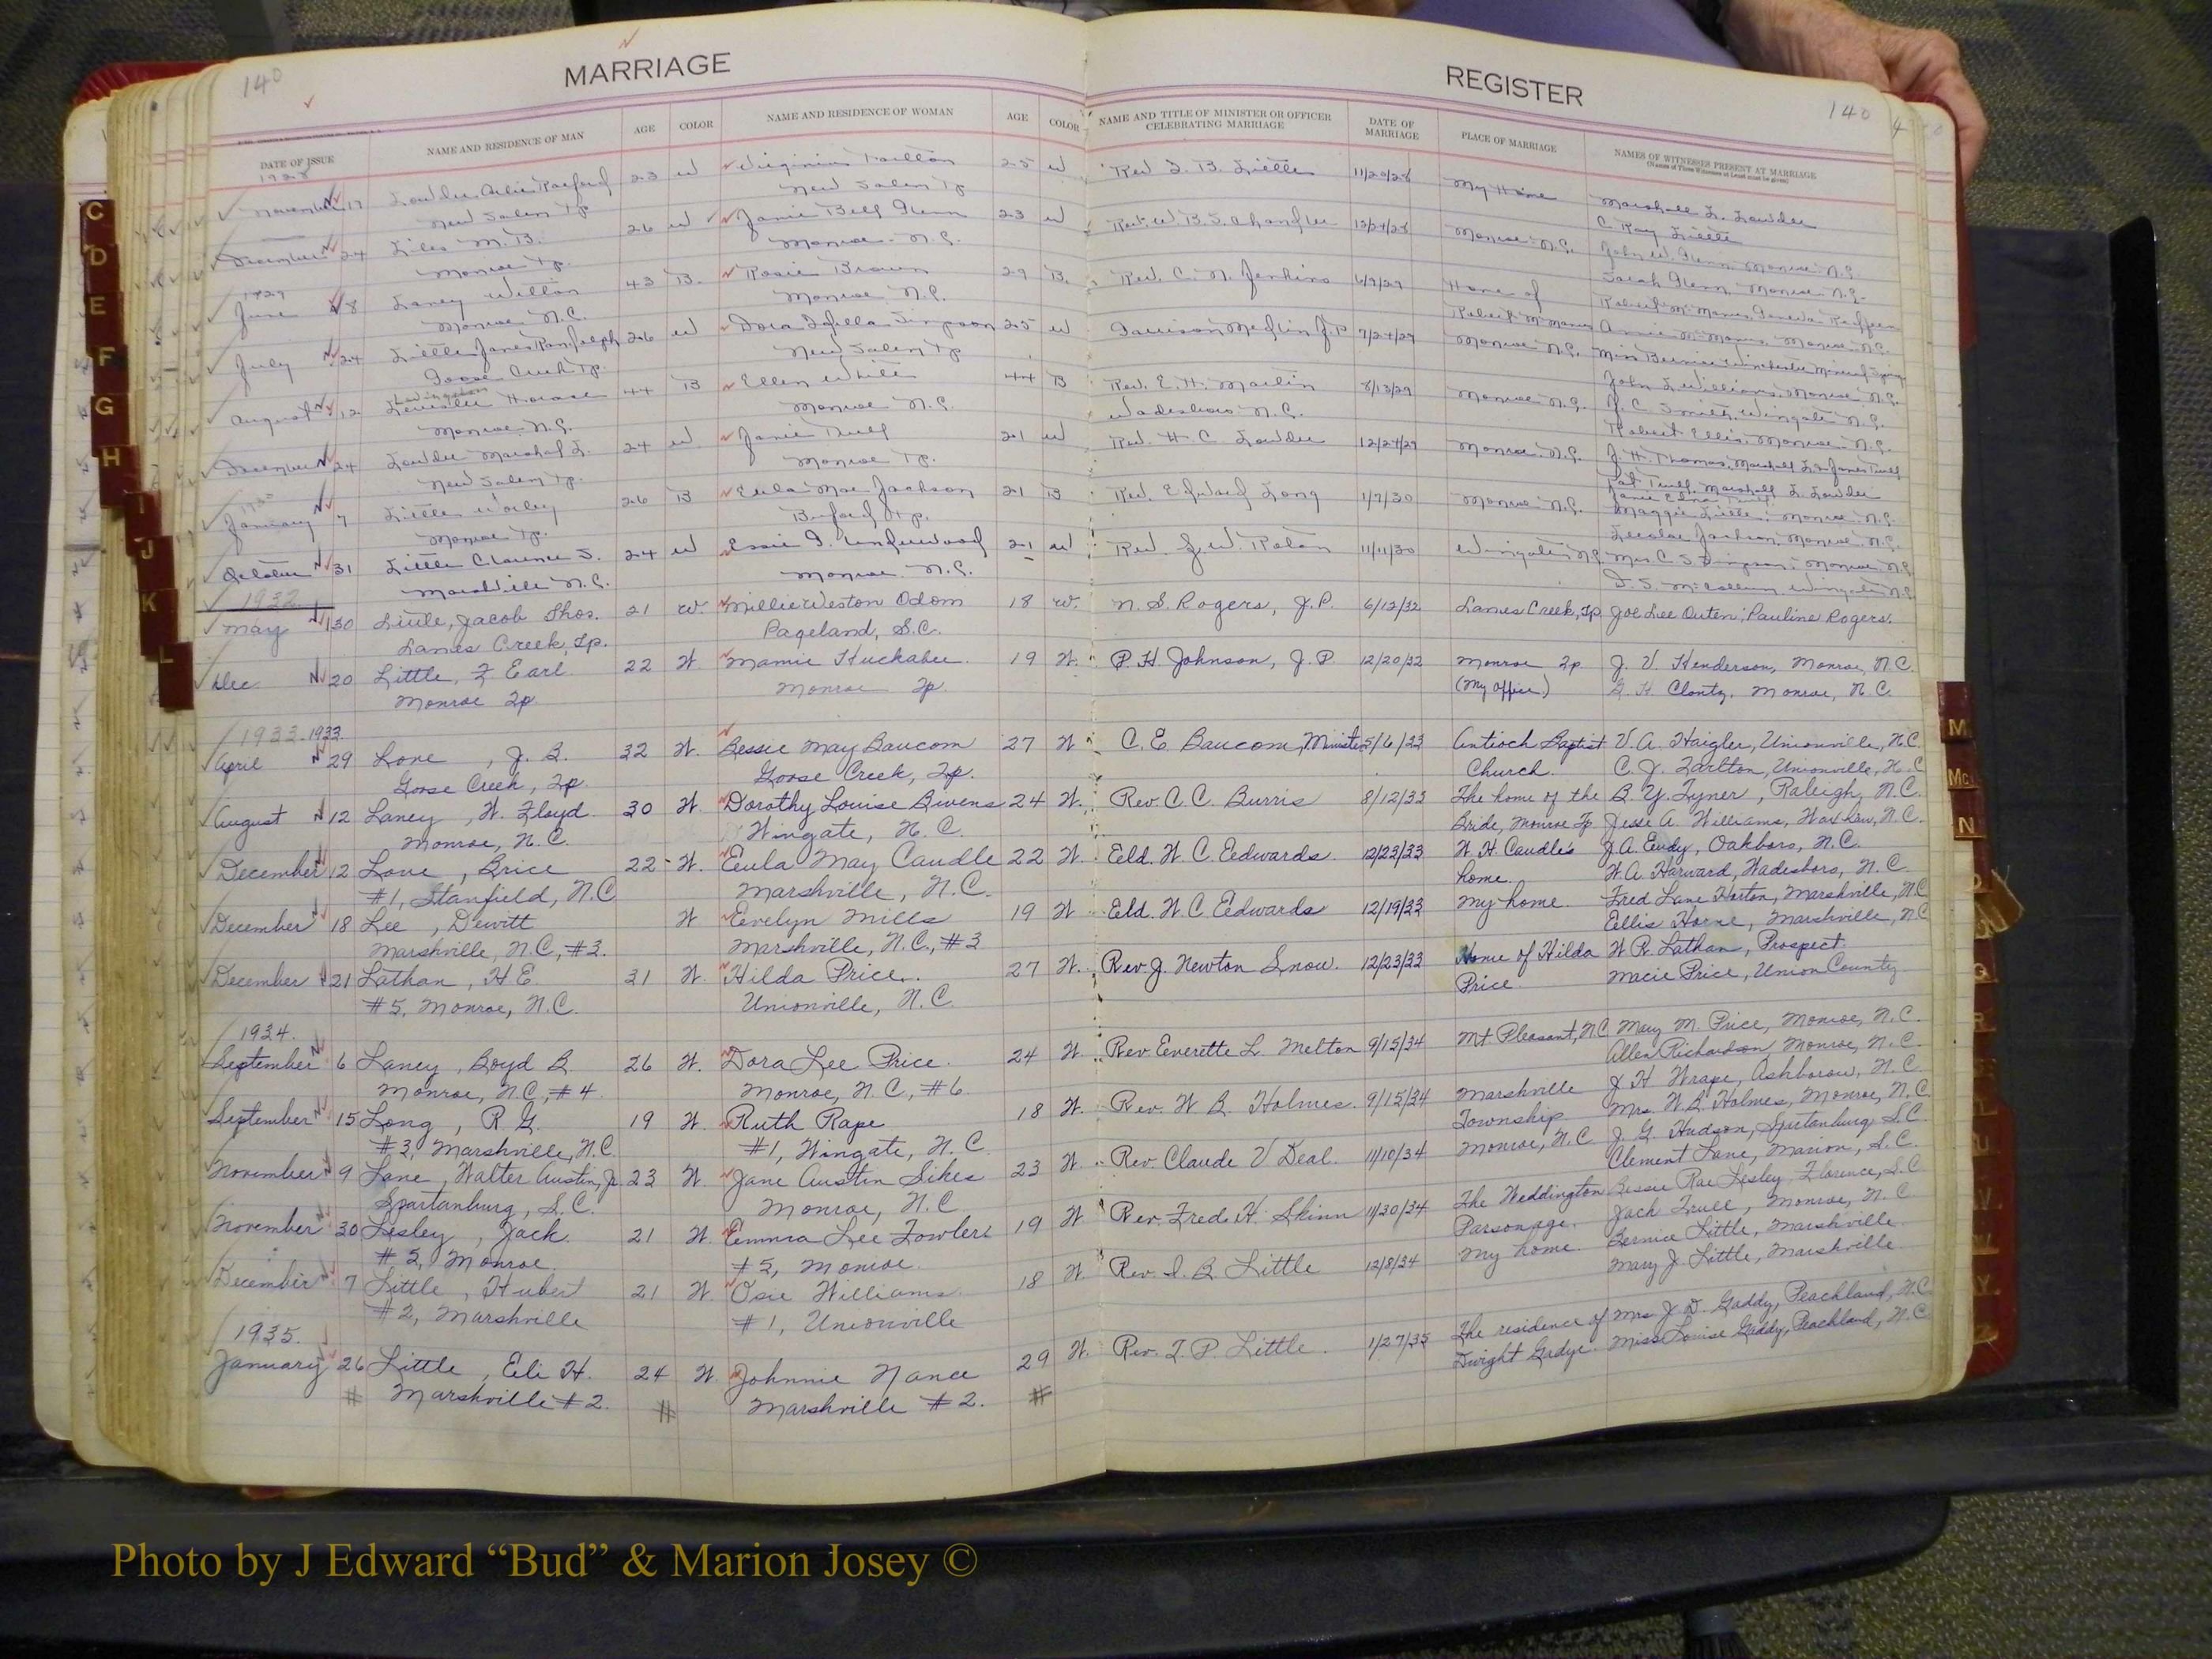 140
MARRIAGE
DATE OF ISSUE
NAME AND RESIDENCE OF MAN
AGE
COLOR
NAME AND RESIDENCE OF WOMAN
AGE
COLOR
1928
November 17 23 W Virginia 25 W
New Salem Tp. New Salem Tp
December 24 Liles M. B. 26 W Janie Bell Glenn 23 W
Monroe Tp. Monroe N.C.
1929
June 8 Laney Willon 43 B. Rosie Brown 29 B.
Monroe N.C. Monroe N.C.
July 24 Little James Randolph 26 W Dora Simpson 25 W
Goose Creek Tp. New Salem Tp
August 12 Horace 44 B Ellen White 44 B
Monroe N.C. Monroe N.C.
December 24 Lowder Marshal L. 24 W Janie Trull 21 W
New Salem Tp. Monroe Tp.
January 7 Little Worley 26 B Eula Mae Jackson 21 B
Monroe Tp. Buford Tp.
October 31 Little Clarence S. 24 W Essie Underwood 21 W
Marshville N.C. Monroe N.C.
1932
May 30 Little, Jacob Thos. 21 W. Millie Weston Odom 18 W.
Lanes Creek, Tp. Pageland, S.C.
Dec. 20 Little, F Earl 22 W. Mamie Huckabee. 19 W.
Monroe Tp. Monroe Tp.
1933 1933
April 29 Love, J. B. 32 W. Bessie May Baucom 27 W
Goose Creek, Tp. Goose Creek, Tp.
August 12 Laney, W. Floyd 30 W. Dorothy Louise Bivens 24 W.
Monroe, N.C. Wingate, N.C.
December 12 Love, Brice 22 W. Eula May Caudle 22 W.
#1, Stanfield, N.C. Marshville, N.C.
December 18 Lee, Dewitt W Evelyn Mills 19 W
Marshville, N.C., #3. Marshville, N.C., #3
December 21 Lathan, H E. 31 W. Hilda Price. 27 W.
#5, Monroe, N.C. Unionville, N.C.
1934.
September 6 Laney, Boyd B. 26 W. Dora Lee Price. 24 W.
Monroe, N.C., #4 Monroe, N.C., #6.
September 15 Long, R. G. 19 W. Ruth Rape 18 W.
#3, Marshville, N.C. #1, Wingate, N.C.
November 9 Lane, Walter Austin, Jr. 23 W Jane Austin Sikes 23 W.
Spartanburg, S.C. Monroe, N.C.
November 30 Lesley, Jack 21 W. Emma Lee Fowler 19 W
#5, Monroe. #5, Monroe.
December 7 Little, Hubert 21 W. Osie Williams 18 W
#2, Marshville #1, Unionville
1935.
January 26 Little, Eli H. 24 W. Johnnie Nance 29 W.
# Marshville #2. # Marshville #2. #
REGISTER
140
NAME AND TITLE OF MINISTER OR OFFICER CELEBRATING MARRIAGE
DATE OF MARRIAGE
PLACE OF MARRIAGE
NAMES OF WITNESSES PRESENT AT MARRIAGE
(Names of Three Witnesses at Least must be given)
Rev. Little 11/20/28 My Home Marshall L. Lowder
C. Ray Little
Rev. W. B. S. Chandler 12/24/28 Monroe N.C. John W. Glenn Monroe N.C.
Sarah Glenn Monroe N.C.
Rev. C. N. Jenkins 6/9/29 Home of
Robert McManus Annie McManus Monroe N.C.
J.P. 7/24/29 Monroe N.C.
Rev. E. H. Martin 8/13/29 Monroe N.C. John Williams, Monroe N.C.
Wadesboro N.C. Smith, Wingate N.C.
Robert Ellis, Monroe N.C.
Rev. H. C. Lowder 12/24/29 Monroe N.C. J. H. Thomas,
Marshall L. Lowder
Rev. Edward Long 1/7/30 Monroe N.C. Maggie Little, Monroe N.C.
Jackson, Monroe N.C.
Rev. 11/11/30 Wingate N.C. Mrs. C. S. Simpson, Monroe N.C.
Wingate N.C.
N. S. Rogers, J.P. 6/12/32 Lanes Creek, Tp. Joe Lee Outen; Pauline Rogers.
P. H. Johnson, J.P. 12/20/32 Monroe Tp J. V. Henderson, Monroe, N.C.
(My office) Clontz, Monroe, N.C.
C. E. Baucom, Minister 5/6/33 Antioch Baptist V. A. Haigler, Unionville, N.C.
Church. C. J. Tarlton, Unionville, N.C.
Rev. C. C. Burris 8/12/33 The home of the B. Y. Tyner, Raleigh, N.C.
Bride, Monroe Tp. Jesse A. Williams, Waxhaw, N.C.
Eld. W. C. Eedwards 12/23/33 W H Caudle's J. A. Eudy, Oakboro, N.C.
home. W. A. Harward, Wadesboro, N.C.
Eld. W. C. Eedwards 12/19/33 My home. Fred Lane Horton, Marshville, N.C.
Ellis Horne, Marshville, N.C.
Rev. J. Newton Snow. 12/23/33 Home of Hilda W. R. Lathan, Prospect.
Price. Macie Price, Union County
Rev. Everette L. Melton 9/15/34 Mt Pleasant, N.C. Mary M. Price, Monroe, N.C.
Allen Richardson Monroe, N.C.
Rev. W B. Holmes. 9/15/34 Marshville J. H Wrape, Ashborow, N.C.
Township Mrs. W. B. Holmes, Monroe, N.C.
Rev. Claude V Deal. 11/10/34 Monroe, N.C. J. G. Hudson, Spartanburg S.C.
Clement Lane, Marion, S.C.
Rev. Fred. H. Skinn 11/30/34 The Weddington Bessie Rae Lesley, Florence, S.C.
Parsonage. Jack Trull, Monroe, N.C.
Rev. I. B. Little 12/8/34 My home. Bernice Little, Marshville.
Mary J. Little, Marshville
Rev. T. P. Little. 1/27/35 The residence of Mrs. J. D. Gaddy, Peachland, N.C.
Dwight Gadye. Miss Louise Gaddy, Peachland, N.C.
C
D
E
F
G
H
I
J
K
L
M
Mc
N
Photo by J Edward “Bud” & Marion Josey ©